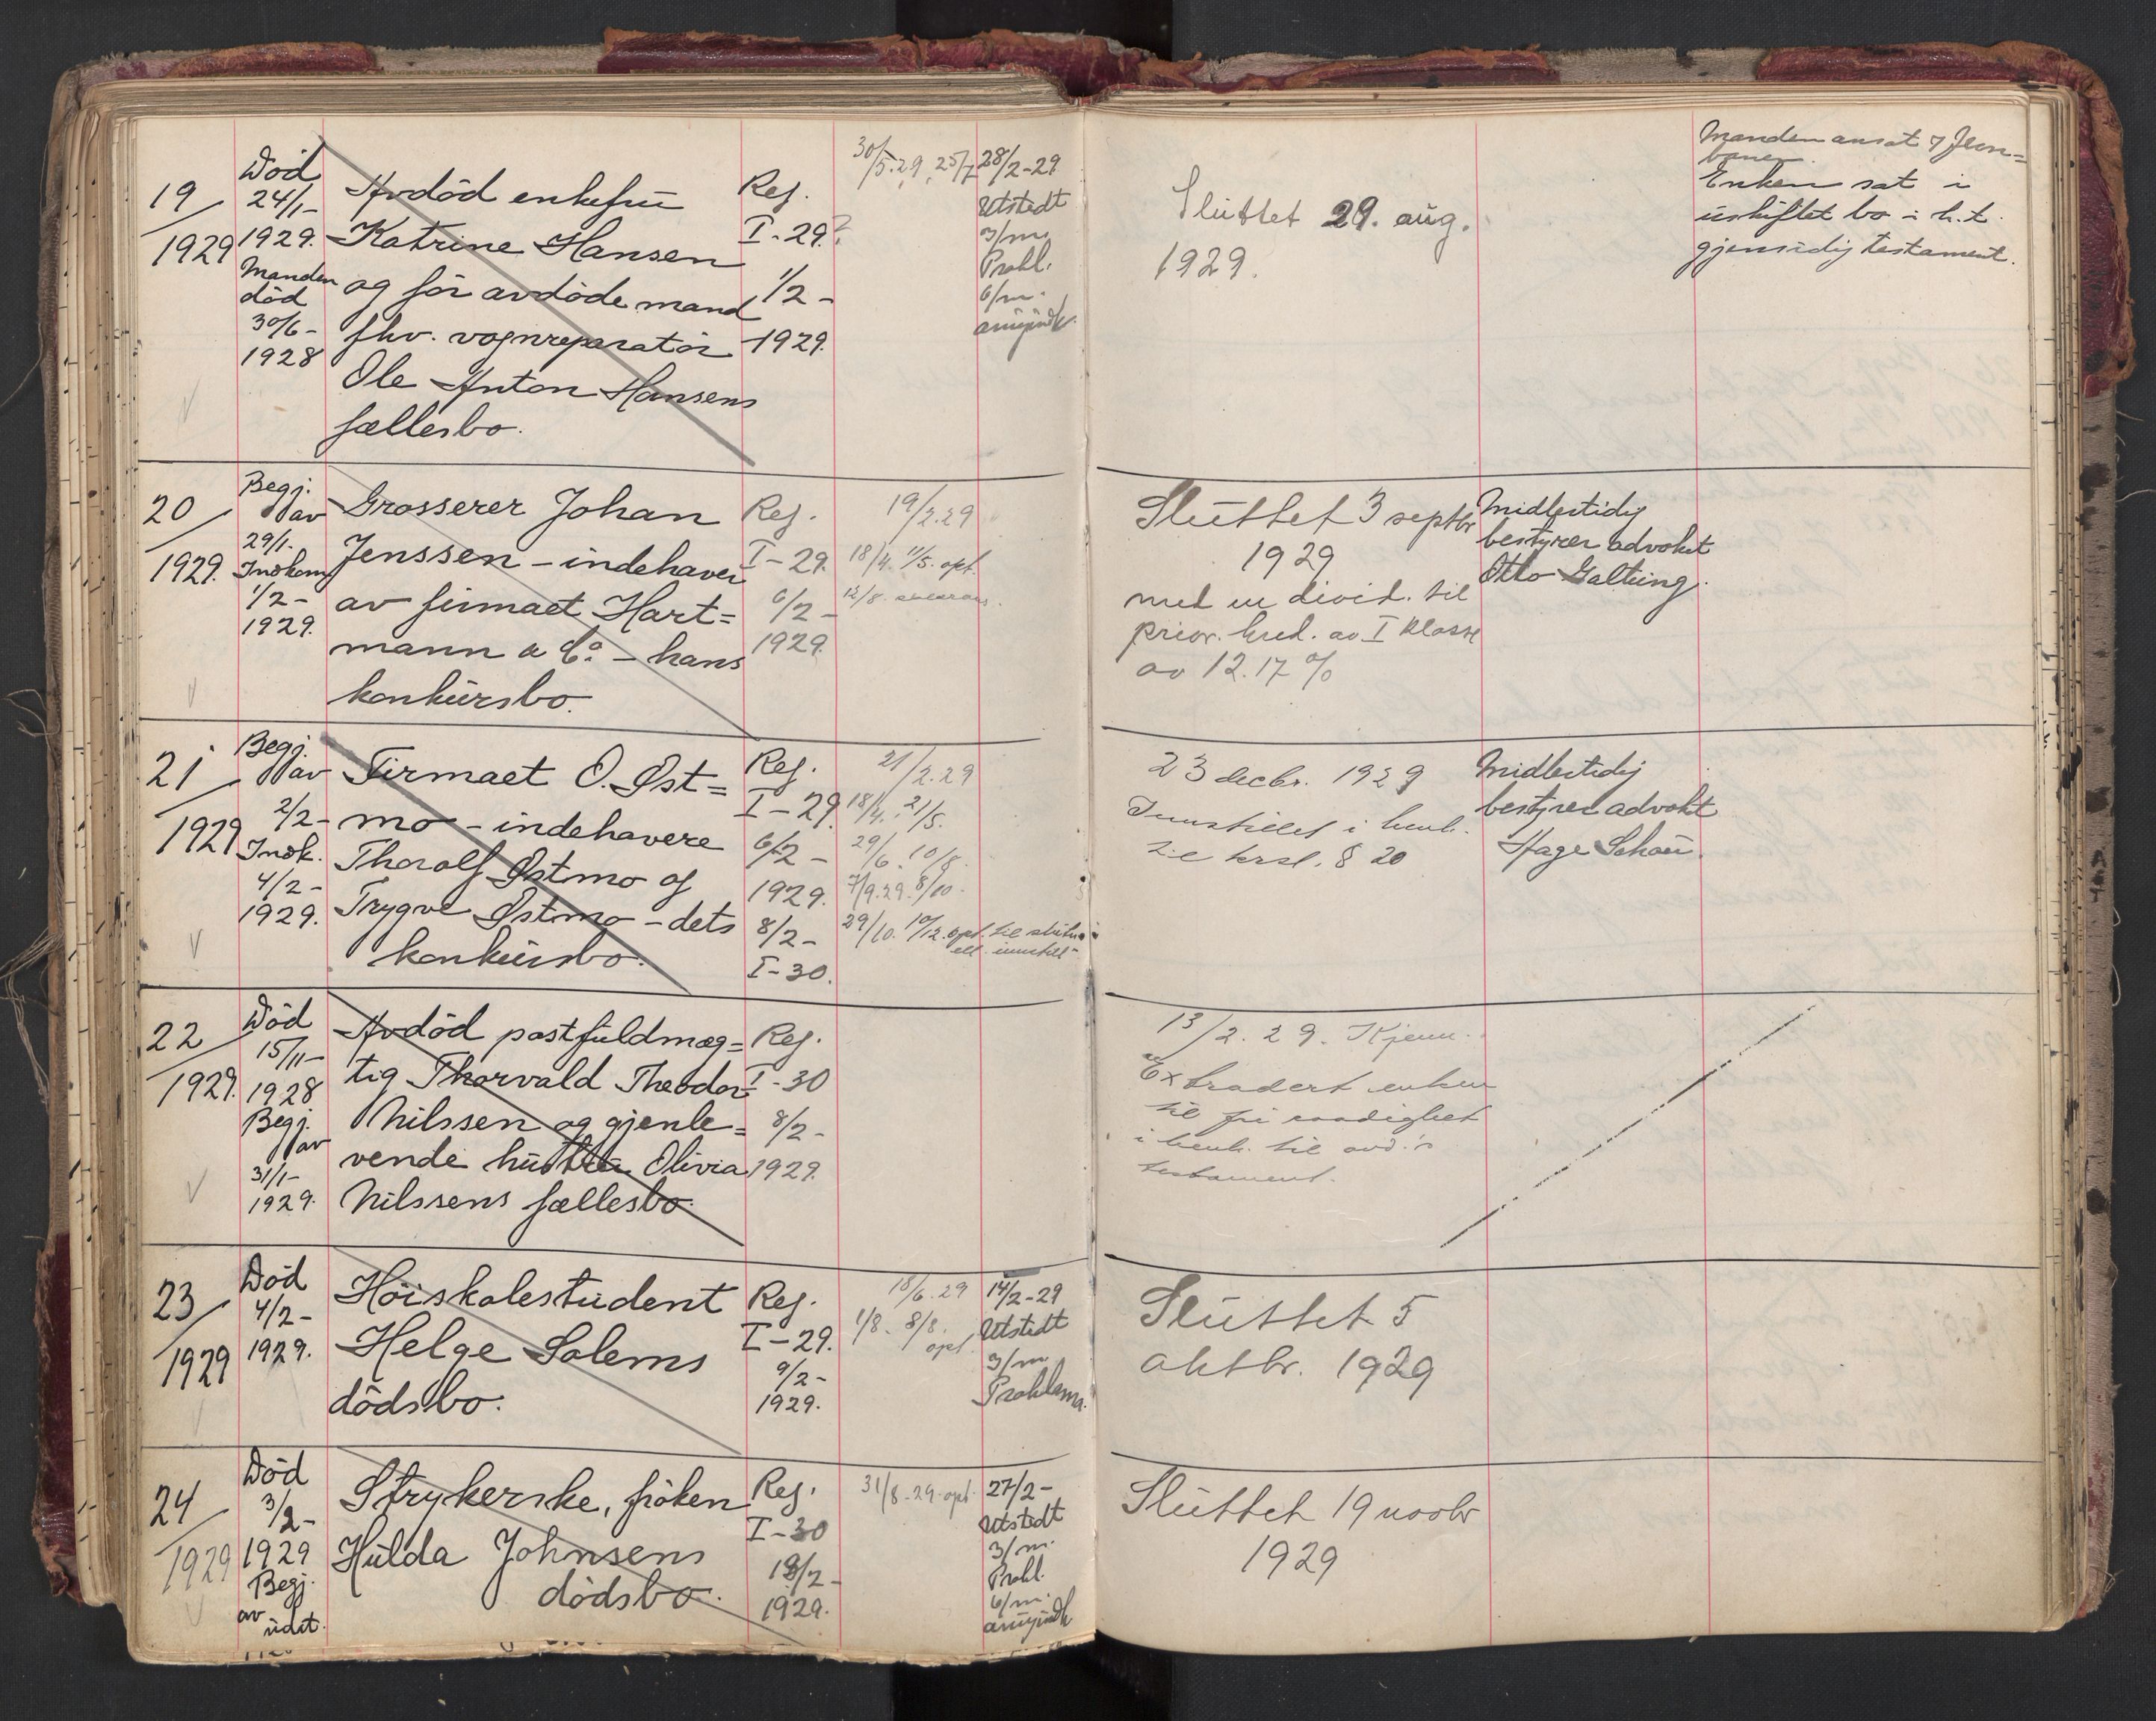 19/1929
Død
24/1-
1929.
Manden
død
30/6-
1928
Avdød enkefru
Katrine Hansen
og før avdøde mand
fhv. vognreparatør
Ole Anton Hansens
fællesbo.
Reg.
I-29.
1/2-
1929.
30/5.29, 25/7
28/2-29
Utstedt
3/m.
Prokl.
6/m.
Sluttet 29. aug.
1929.
Manden ansat v Jern=
banen.
Enken sat i
uskiftet bo i h.t.
gjensidig testament.
20/1929.
Begj.
av
29/1.
Indkom
1/2-
1929.
Grosserer Johan
Jenssen - indehaver
av firmaet Hart=
mann & Co. - hans
konkursbo.
Reg.
I-29.
6/2-
1929.
19/2.29
18/4. 11/5. opt.
12/8.
Sluttet 3 septbr
1929
med en divid. til
prior. kred. av I klasse
av 12.17 %
Midlertidig
bestyrer advokat
Otto Galtung.
21/1929
Begj.
av
2/2-
Indk.
4/2-
1929.
Firmaet O. Øst=
mo - indehavere
Thorolf Østmo og
Trygve Østmo - dets
konkursbo.
Reg.
I-29.
6/2-
1929.
8/2-
I-30.
21/2.29
18/4. 21/5.
29/6. 10/8.
7/9.29. 8/10.
29/10. 10/12. opt. til slutn.
ell. innstill-
23 decbr. 1929
Innstillet i henh.
til krsl. § 20
Midlertidig
bestyrer advokt
Hage Schou.
22/1929.
Død
15/11-
1928
Begj.
av
31/1-
1929.
Avdød postfuldmæg=
tig Thorvald Theodor
Nilssen og gjenle=
vende hustru Olivia
Nilssens fællesbo.
Reg.
I-30
8/2-
1929.
13/2.29. Kjenn.
Extradert enken
til fri raadighet
i henh. til avd.'s
testament.
23/1929
Død
4/2-
1929.
Høiskolestudent
Helge Solems
dødsbo.
Reg.
I-29.
9/2-
1929.
18/6.29
1/8. 8/8.
opt.
14/2-29
Utstedt
3/m
Proklama.
Sluttet 5
oktbr. 1929
24/1929
Død
3/2-
1929
Begj.
av
udat.
Strykerske, frøken
Hulda Johnsens
dødsbo.
Reg.
I-30
18/2-
1929.
31/8.29. opt.
27/2-
Utstedt
3/m.
Prokl.
6/m.
Sluttet 19 novbr
1929